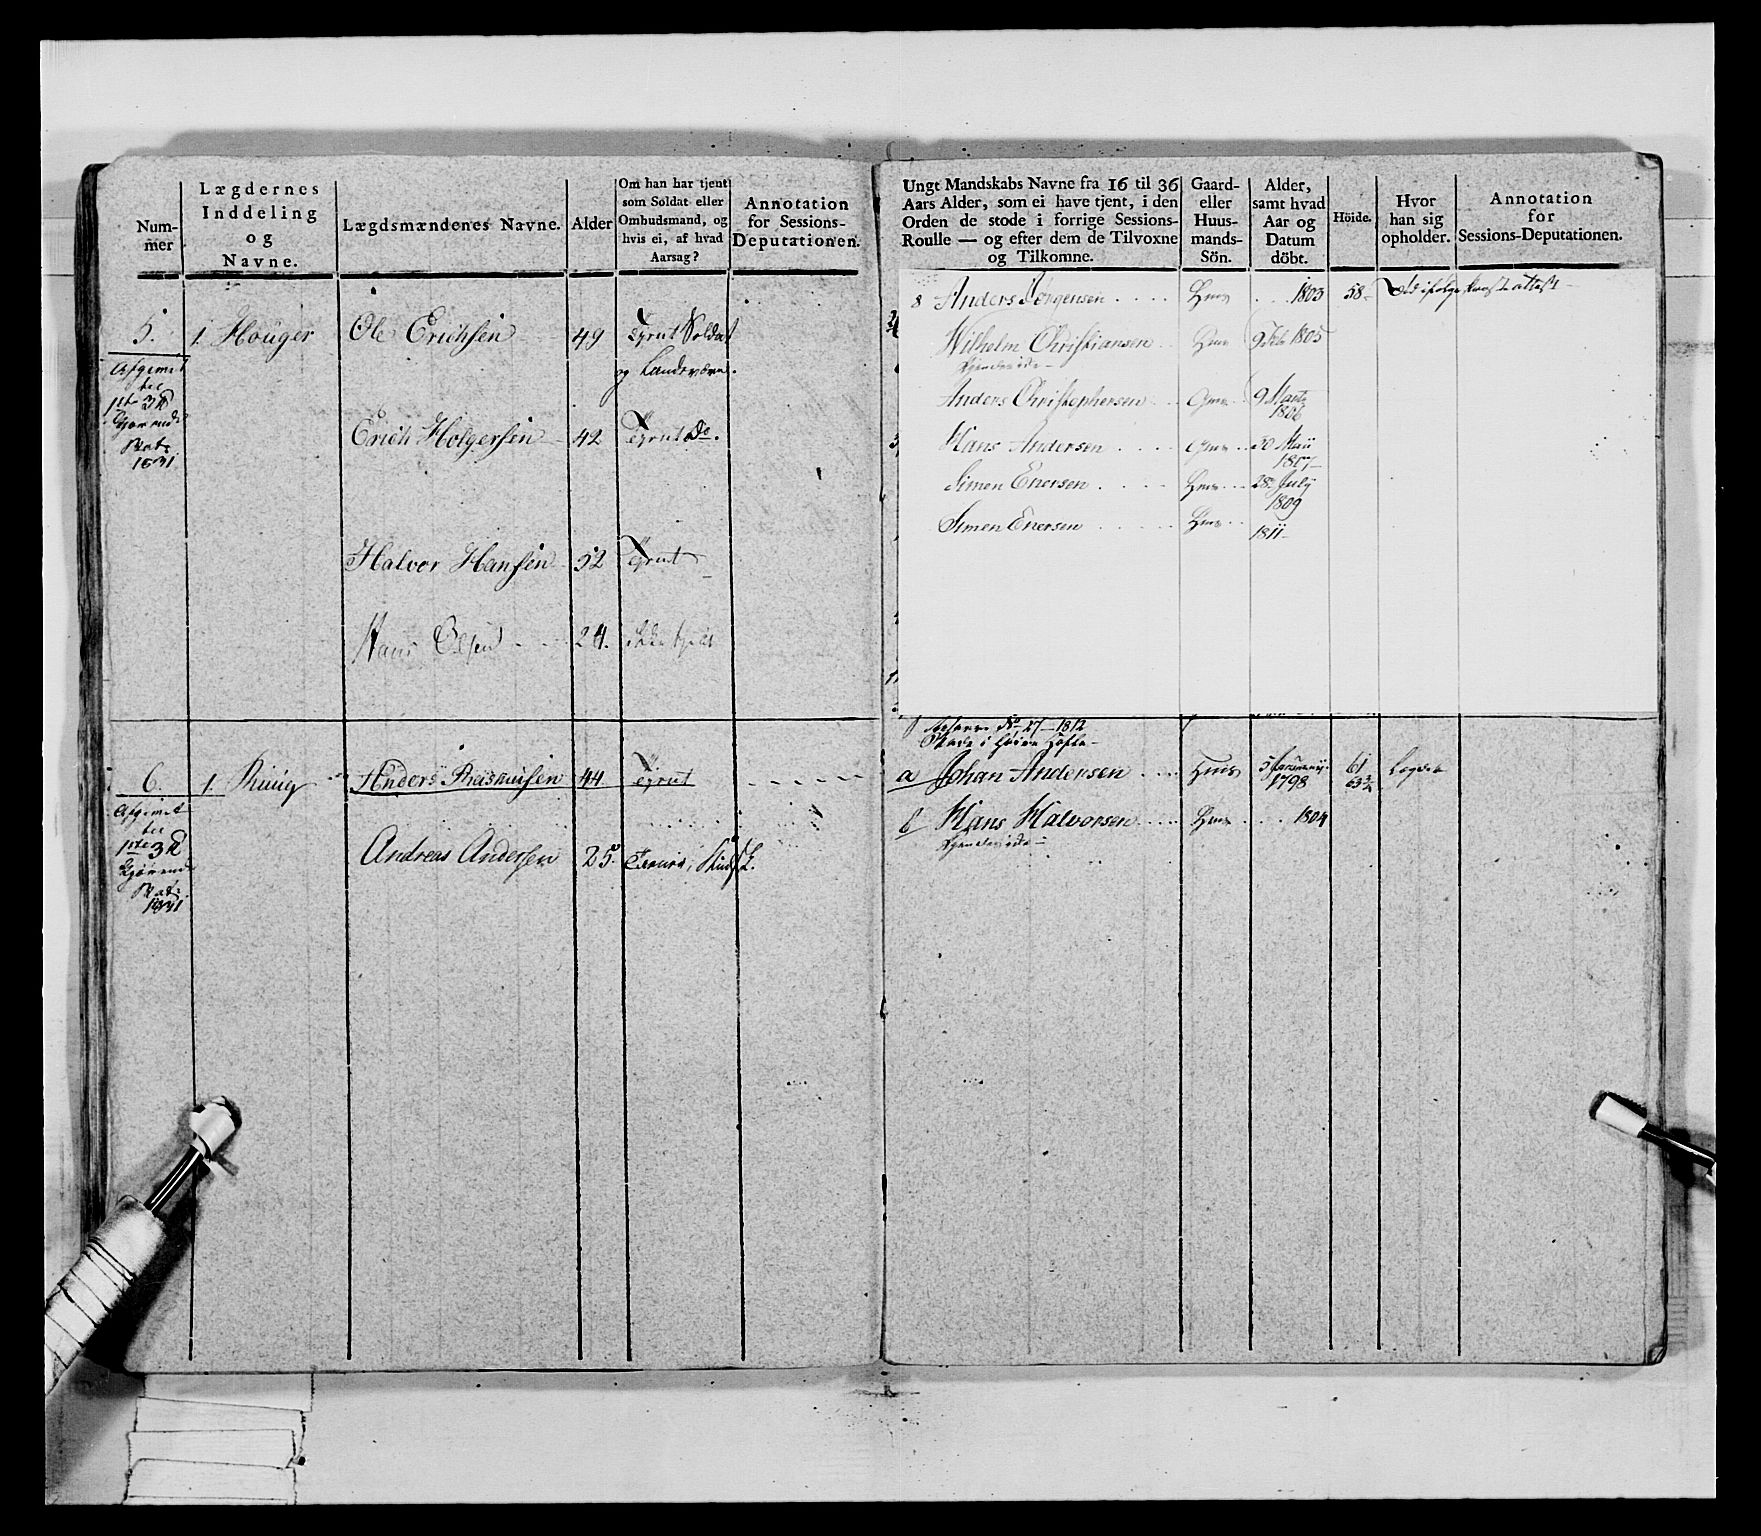 Num-
mer
Lægdernes
Inddeling
og
Navne.
Lægdsmændenes Navne.
Alder
Om han har tjent
som Soldat eller
Ombudsmand, og
hvis ei, af hvad
Aarsag?
Annotation
for Sessions-
Deputationen.
5.
1. Houger
Ole Erichsen
49
Soldat
og Landeværn.
til
1ste
1831
Erich Holgersen
42
Do.
Halvor Hansen
52
Hans Olsen
24.
6.
1.
Anders Rasmussen
44
til
1ste
1831
Andreas Andersen
25.
Ungt Mandskabs Navne fra 16 til 36
Aars Alder, som ei have tjent, i den
Orden de stode i forrige Sessions-
Roulle — og efter dem de Tilvoxne
og Tilkomne.
Gaard-
eller
Huus-
mands-
Sön.
Alder,
samt hvad
Aar og
Datum
döbt.
Höide.
Hvor
han sig
opholder.
Annotation
for
Sessions-Deputationen.
8 Anders Jörgensen
Hms
1803
58
Wilhelm Christiansen
Hms
1805
Anders Christophersen
Gms
9 Marts
1806
Hans Andersen
Gms
30 Maii
1807
Simen Enersen
Hms
28 July
1809
Simen Enersen
Hms
1811
No 27 1812
a Johan Andersen
Hms
5 Januarij
1798
61
63 3/4
Lægdet
b Hans Halvorsen
Hms
1804